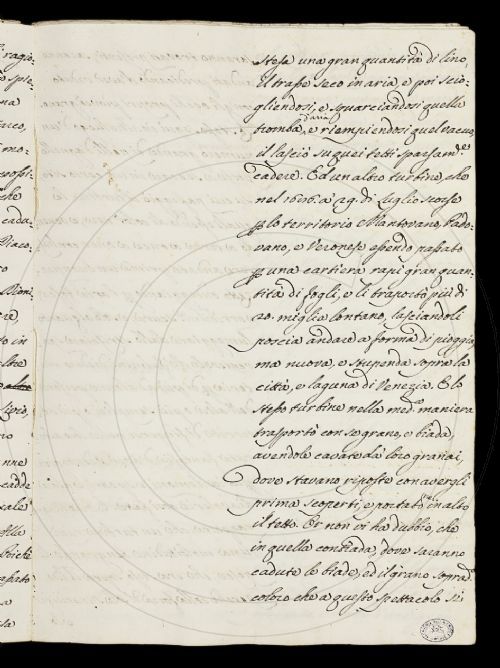 stesa una gran quantità di lino,
il trasse seco in aria, e poi scio-
gliendosi, e squarciandosi quella
tromba, e d'aria riempiendosi quel vacuo,
il lasciò su quei tetti sparsam.te
cadere. Ed un altro turbine, che
nel à 29. di Luglio scorse
p lo territorio Mantovano, Pado-
vano, e Veronese essendo passato
p una cartiera rapì gran quan-
tità di fogli, e li trasportò più di
20. miglia lontano, lasciandoli
poscia andare a forma di pioggia
ma nuova, e stupenda sopra la
città, e laguna di Venezia. E lo
stesso turbine nella med.ma maniera
trasportò con se grano, e biada,
avendole cavate da' loro granai,
dove stavano riposte con avergli
prima scoperti, e portato in alto
il tetto. Or non vi ha dubbio, che
in quella contrada, dove saranno
cadute le biade, ed il grano sopra
coloro che a questo spettacolo si
ragio-
spie-
na
mo-
che
cadu-
Giaco-
to in
altre
nno
cadde
ella
Poichè
passato
la